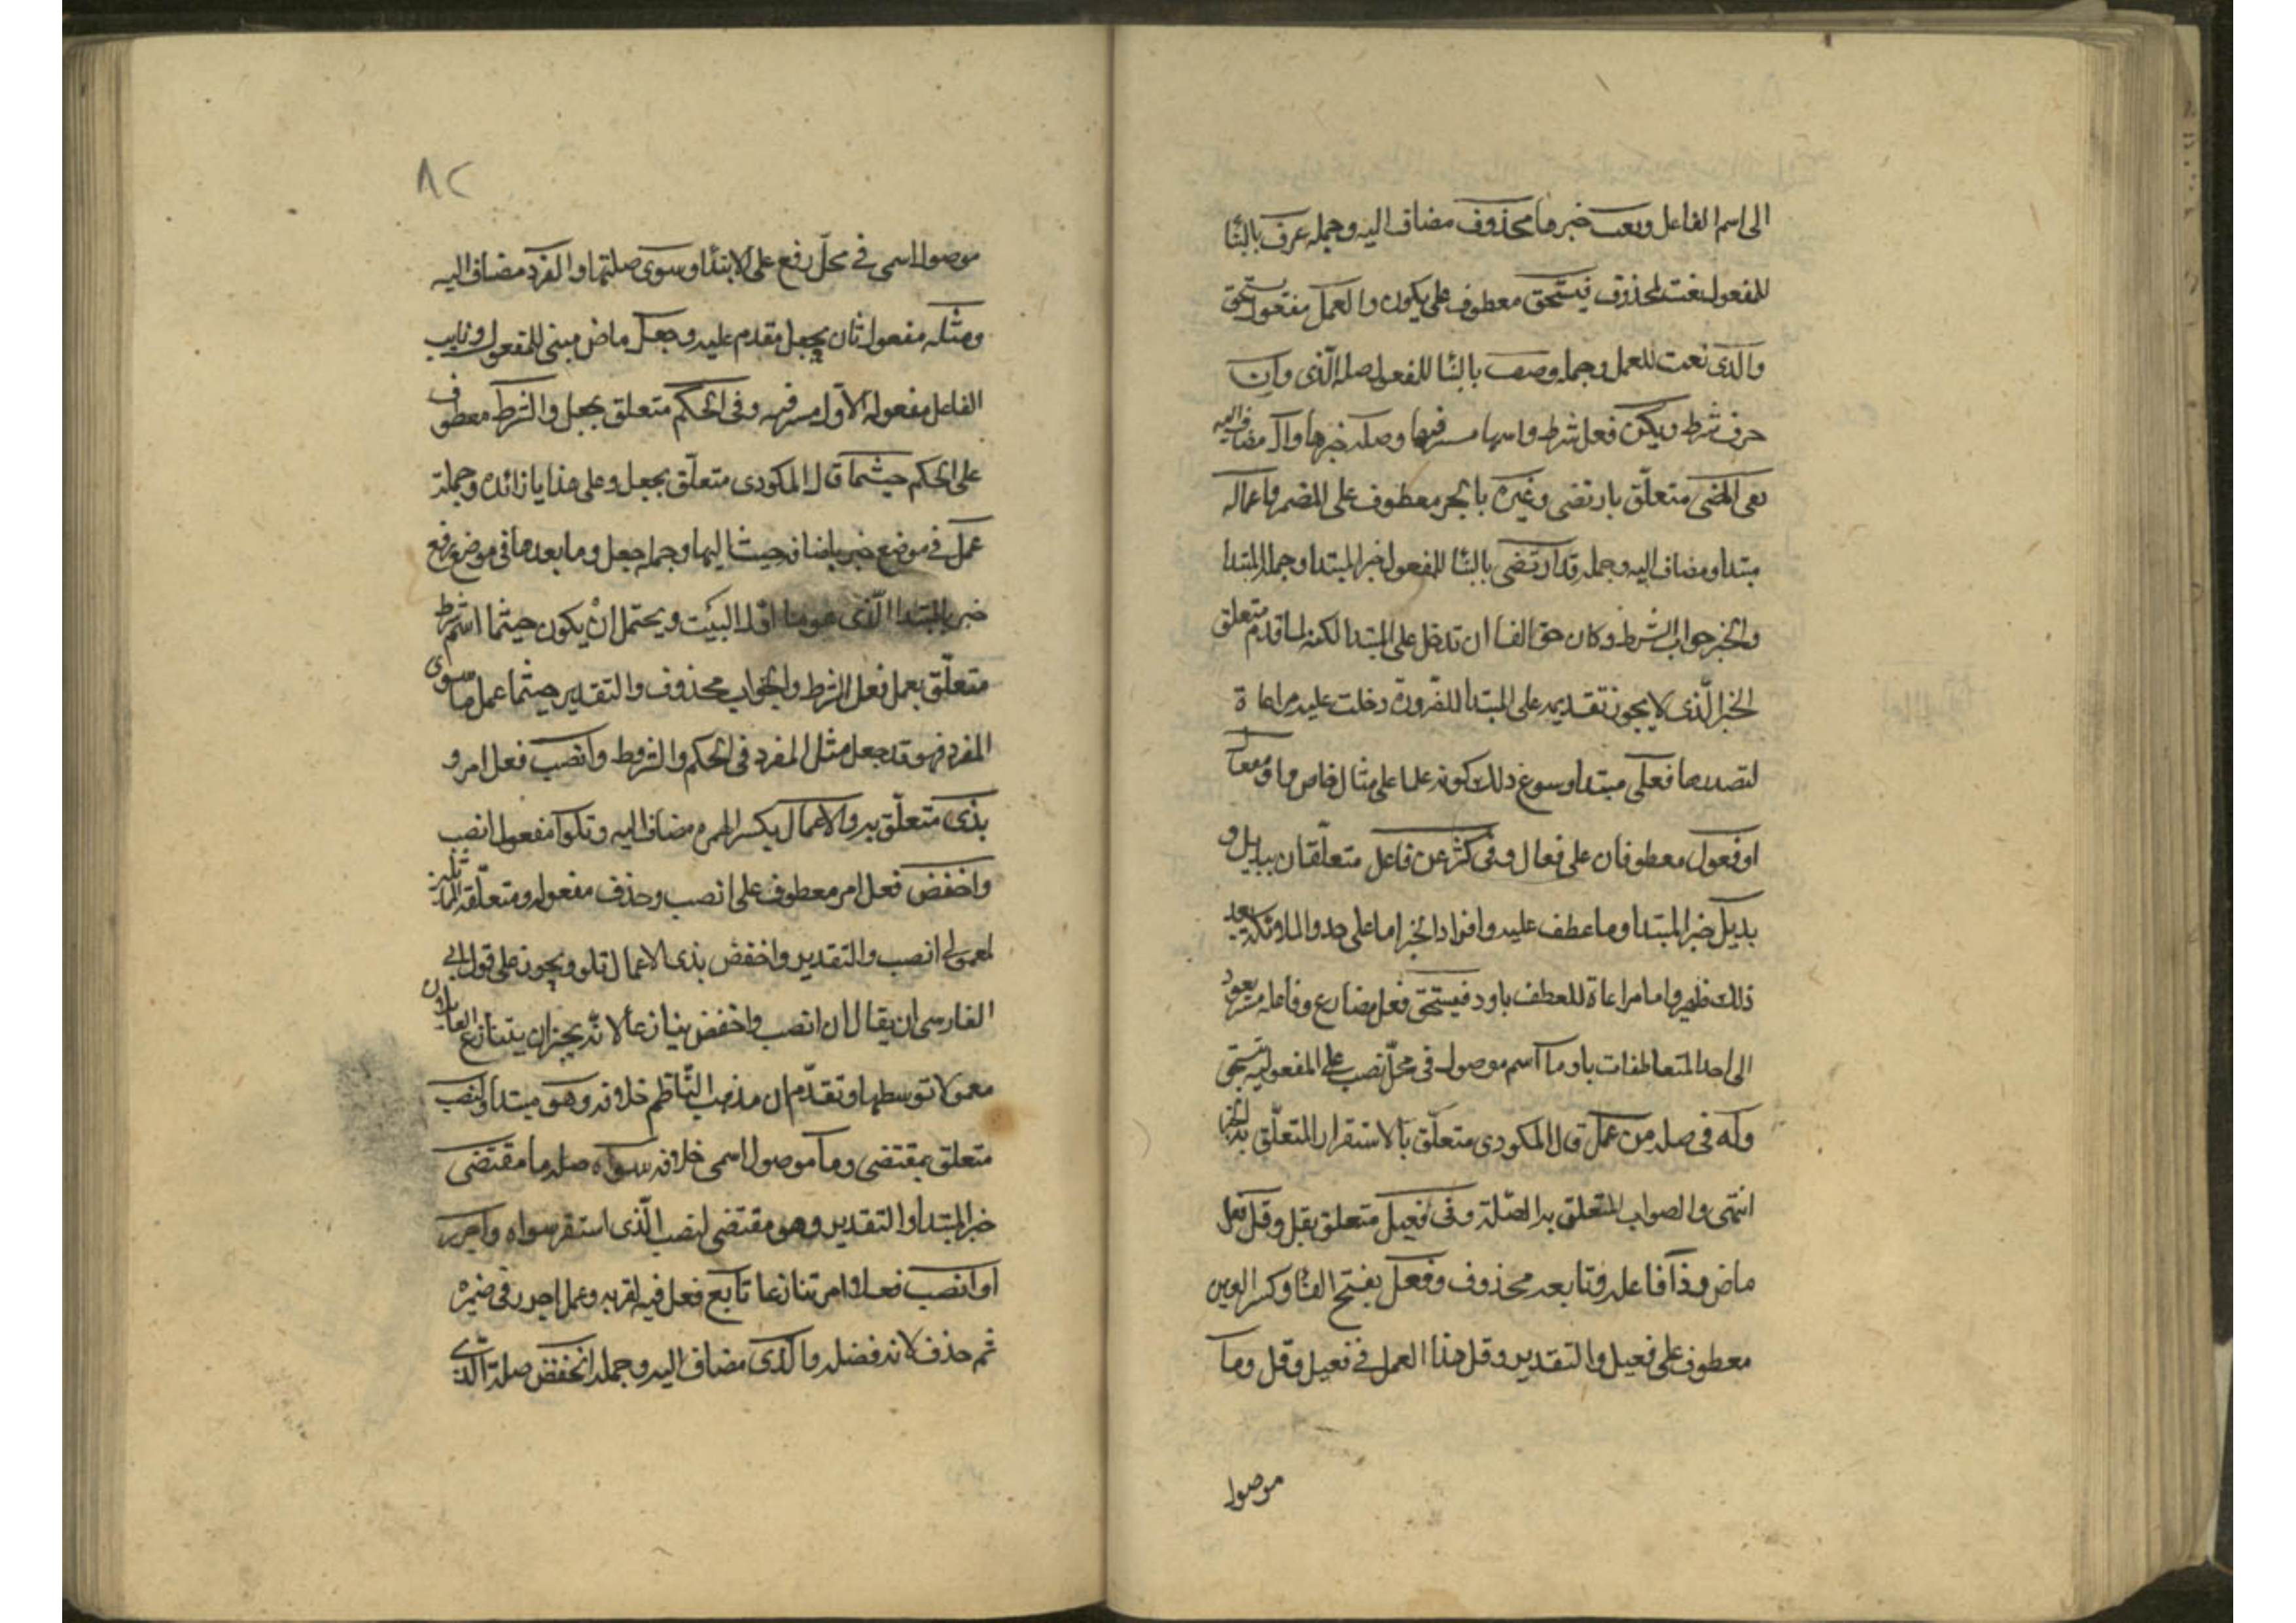 الى اسم الفاعل ونعت خبر ما محذوف مضاف اليه وجملة عرف بالبنا
للمفعول نعت لمحذوف فيستحق معطوف على يكون والعمل مفعول يستحق
والذى نعت للعمل وجملة وصف بالبنا للمفعول صلة الذى وان
حرف شرط ويكن فعل شرط واسمها مستتر فيها وصلة خبرها وال مضاف اليه
ففى المضى متعلق بارتضى وغيره بالجر معطوف على المضى واعماله
مبتدا ومضاف اليه وجملة قد ارتضى بالبنا للمفعول خبر المبتدا وجملة المبتدا
والخبر جواب الشرط وكان حق الفا ان تدخل على المبتدا لكنه لما قدم متعلق
الخبر الذى لا يجوز تقديمه على المبتدا للضرورة دخلت عليه مراعاة
لتصدرها فعال مبتدا وسوغ ذلك كونه علما على مثال خاص او مفعال
او فعول معطوفان على فعال وفى كثرة عن فاعل متعلقان ببديل و
بديل خبر المبتدا وما عطف عليه وافراد الخبر اما على حد والملائكة بعد
ذلك ظهير واما مراعاة للعطف باو فيستحق فعل مضارع وفاعله مستتر يعود
الى احد المتعاطفات باو ما اسم موصول فى محل نصب على المفعولية بيستحق
وله فى صلة من عمل قال المكودى متعلق بالاستقرار المتعلق به الخبر
انتهى والصواب المتعلق به الصلة وفى فعيل متعلق بقل وقل فعل
ماض وذا فاعله وتابعه محذوف وفعل بفتح الفا وكسر العين
معطوف على فعيل والتقدير وقل هذا العمل فى فعيل وفعل وما
موصول
٨٢
موصول اسمى فى محل رفع على الابتدا وسوى صلتها والمفرد مضاف اليه
ومثله مفعول ثان بجعل مقدم عليه وجعل ماض مبنى للمفعول ونايب
الفاعل مفعوله الاول مستتر فيه وفى الحكم متعلق بجعل والشرط معطوف
على الحكم حيثما قال المكودى متعلق بجعل وعلى هذا ما زائدة وجملة
عمل فى موضع خبر باضافة حيث اليها وجملة جعل وما بعدها فى موضع رفع
خبر المبتدا الذى هو ما اول البيت ويحتمل ان يكون حيثما اسم شرط
متعلق بعمل فعل الشرط والجواب محذوف والتقدير حيثما عمل ما سوى
المفرد فهو قد جعل مثل المفرد فى الحكم والشروط وانصب فعل امر و
بذى متعلق به والاعمال بكسر الهمزة مضاف اليه وتلوا مفعول انصب
واخفض فعل امر معطوف على انصب وحذف مفعوله ومتعلقه لمماثلة
لمعمولى انصب والتقدير واخفض بذى الاعمال تلو ويجوز على قول ابى
الفارسى ان يقال ان انصب واخفض يتنازعا لانه يجيز ان يتنازع العاملان
معمولا توسطها وتقدم ان مذهب الناظم خلافه وهو مبتدا ولنصب
متعلق بمقتضى وما موصول اسمى خلافه سواه صلة ما مقتضى
خبر المبتدا والتقدير وهو مقتضى لنصب الذى استقر سواه واجرر
او انصب فعلا امر تنازعا تابع فعل فيه لقربه وعمل اجرر فى ضميره
ثم حذف لانه فضلة والذى مضاف اليه وجملة انخفض صلة الذى